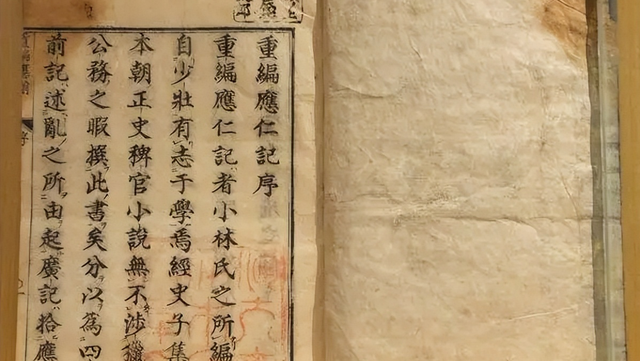 重編應仁記序
重編應仁記者小林氏之所編
自少壯有志于學焉經史子集
本朝正史稗官小說無不涉獵
公務之暇撰此書矣分以為四
前記述亂之所由起廣記拾應